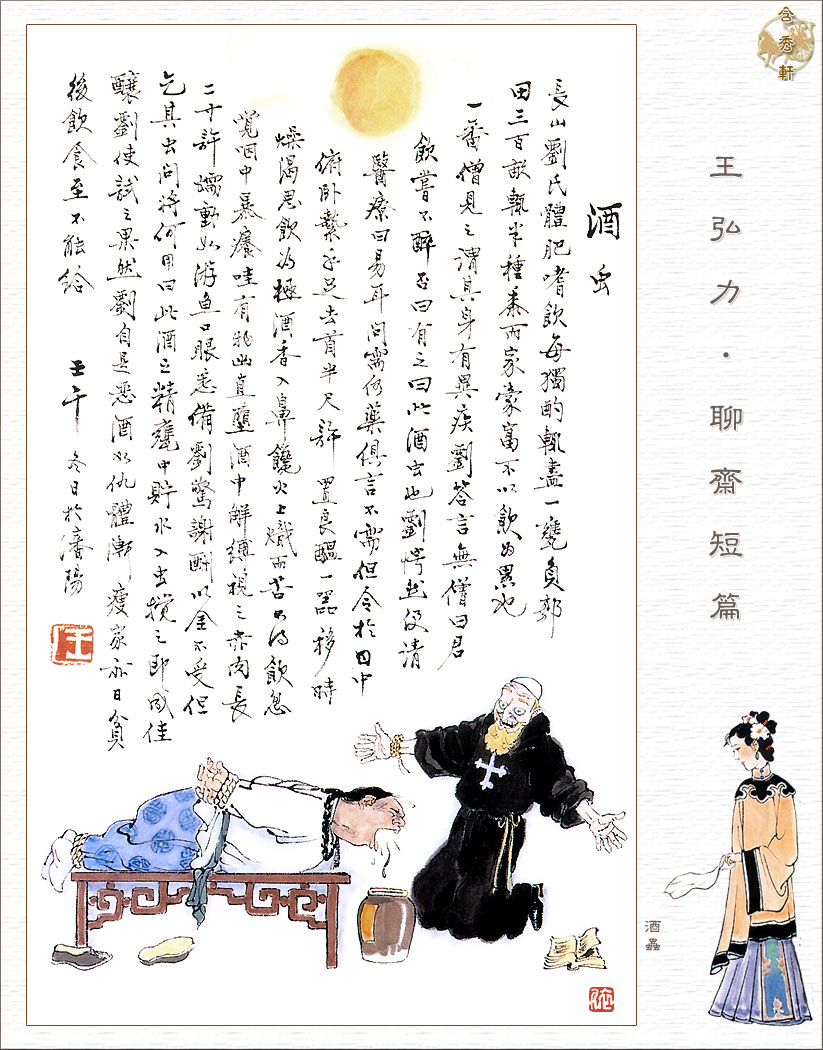 含秀軒
王弘力·聊齋短篇
酒蟲
酒虫
長山劉氏體肥嗜飲每獨酌輒盡一甕負郭
田三百畝輒半種黍而家豪富不以飲為累也
一番僧見之謂其身有異疾劉答言無僧曰君
飲嘗不醉否曰有之曰此酒虫也劉愕然便請
醫療曰易耳問需何藥俱言不需但令於日中
俯卧縶手足去首半尺許置良醞一器移時
燥渴思飲為極酒香入鼻饞火上熾而苦不得飲忽
覺咽中暴癢哇有物出直墮酒中解縛視之赤肉長
二寸許蠕動如游鱼口眼悉備劉驚謝酬以金不受但
乞其虫問將何用曰此酒之精甕中貯水入虫攪之即成佳
釀劉使試之果然劉自是惡酒如仇體漸瘦家亦日貧
後飲食至不能給 壬午冬日於瀋陽
王